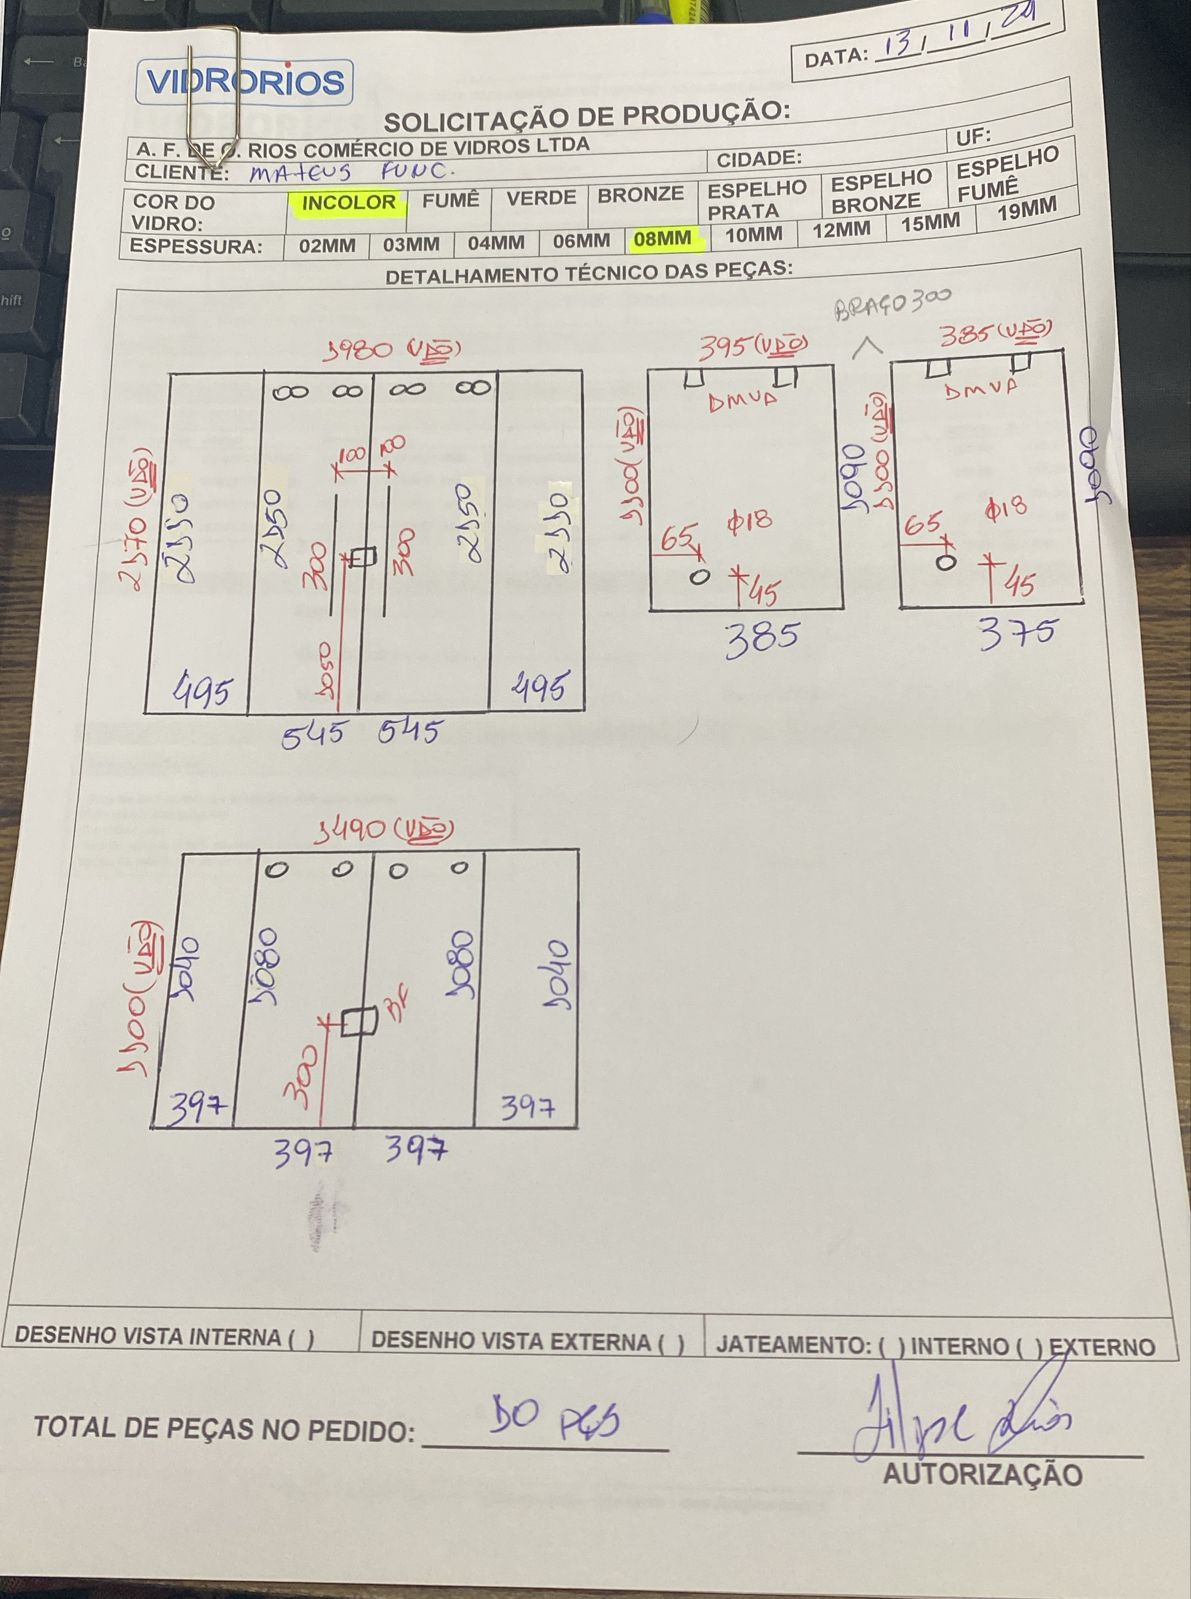 VIDRORIOS
DATA: 13, 11, 24
SOLICITAÇÃO DE PRODUÇÃO:
A. F. DE C. RIOS COMÉRCIO DE VIDROS LTDA
CLIENTE: MATEUS FUNC.
CIDADE:
UF:
COR DO VIDRO:
INCOLOR
FUMÊ
VERDE
BRONZE
ESPELHO PRATA
ESPELHO BRONZE
ESPELHO FUMÊ
ESPESSURA:
02MM
03MM
04MM
06MM
08MM
10MM
12MM
15MM
19MM
DETALHAMENTO TÉCNICO DAS PEÇAS:
BRAÇO 300
1980 (VÃO)
395 (VÃO)
385 (VÃO)
DMVA
DMVA
100
100
2170 (VÃO)
2110
2150
2150
2110
300
300
1050
495
495
545
545
1100 (VÃO)
1090
65
Φ18
45
385
1100 (VÃO)
1090
65
Φ18
45
375
1490 (VÃO)
1100 (VÃO)
1040
1080
1080
1040
300
BF
397
397
397
397
DESENHO VISTA INTERNA ( )
DESENHO VISTA EXTERNA ( )
JATEAMENTO: ( ) INTERNO ( ) EXTERNO
TOTAL DE PEÇAS NO PEDIDO: 10 PÇS
Filipe Rios
AUTORIZAÇÃO